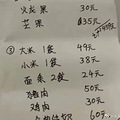 火龙果 30元
芒果 35元
③大米1袋 49元
小米1袋 38元
面条2袋 24元
猪肉 50元
鸡肉 30元
60元